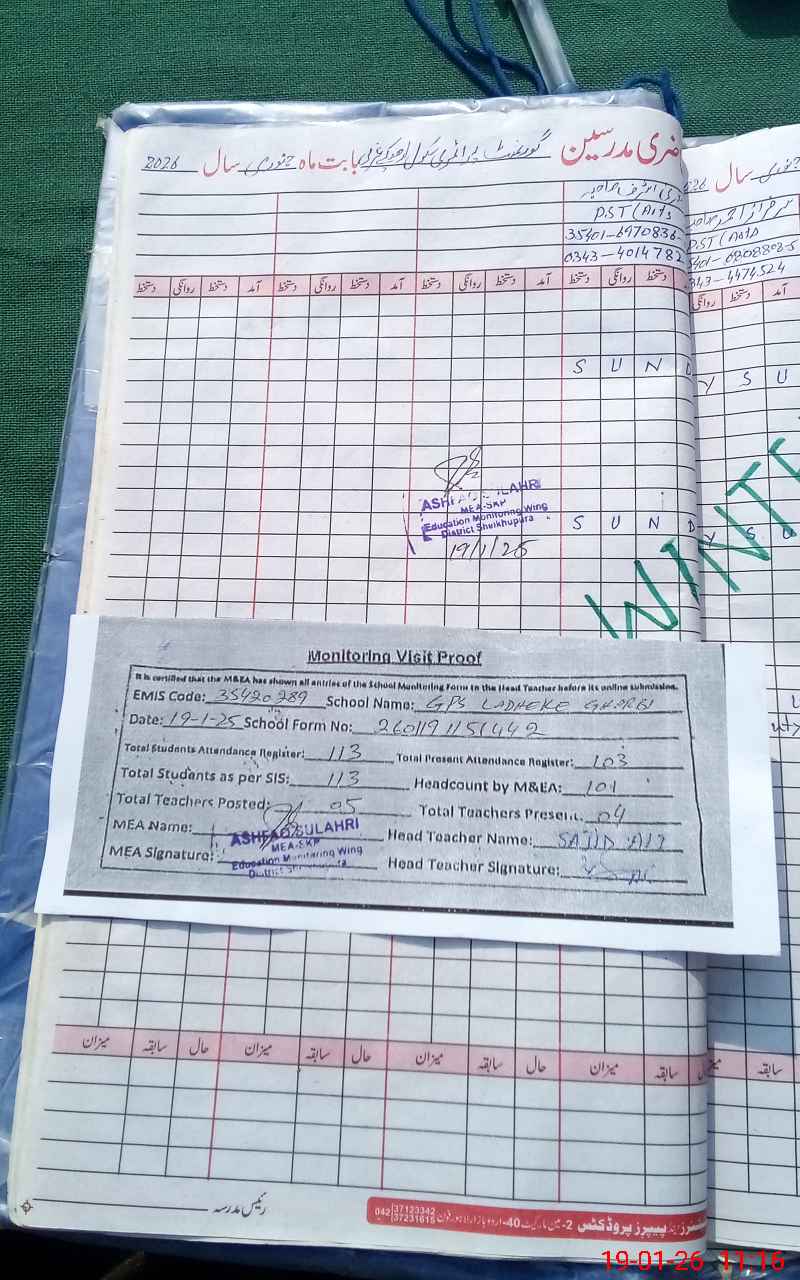 ضری مدرسین گورنمنٹ پرائمری سکول بابت ماہ جنوری سال 2026
P.ST (Arts
35401-6970836-
0343-4014782
دستخط روانگی دستخط آمد دستخط روانگی دستخط آمد دستخط روانگی دستخط آمد دستخط روانگی دستخط
S U N D
ASHFAQ SULAHRI
MEA-SKP
Education Monitoring Wing
District Sheikhupura
19/1/26
S U N D
سال جنوری
PST (Arts
-4474524
روانگی دستخط آمد
Y S U
Y S U
WINTE
Monitoring Visit Proof
It is certified that the M&EA has shown all entries of the School Monitoring Form to the Head Teacher before its online submission.
EMIS Code: 35420289 School Name: GPS LADHEKE GHARBI
Date: 19-1-25 School Form No: 2601191151442
Total Students Attendance Register: 113 Total Present Attendance Register: 103
Total Students as per SIS: 113 Headcount by M&EA: 101
Total Teachers Posted: 05 Total Teachers Present: 04
MEA Name: Head Teacher Name: SAJID ALI
MEA Signature: Head Teacher Signature:
ASHFAQ SULAHRI
MEA-SKP
Education Monitoring Wing
District Sheikhupura
میزان سابقہ حال میزان سابقہ حال میزان سابقہ حال میزان سابقہ
سابقہ
رئیس مدرسہ
پیپرز پروڈکٹس 2-مین مارکیٹ 40-اردو بازار لاہور فون 042 37123342 37231615
19-01-26 11:16